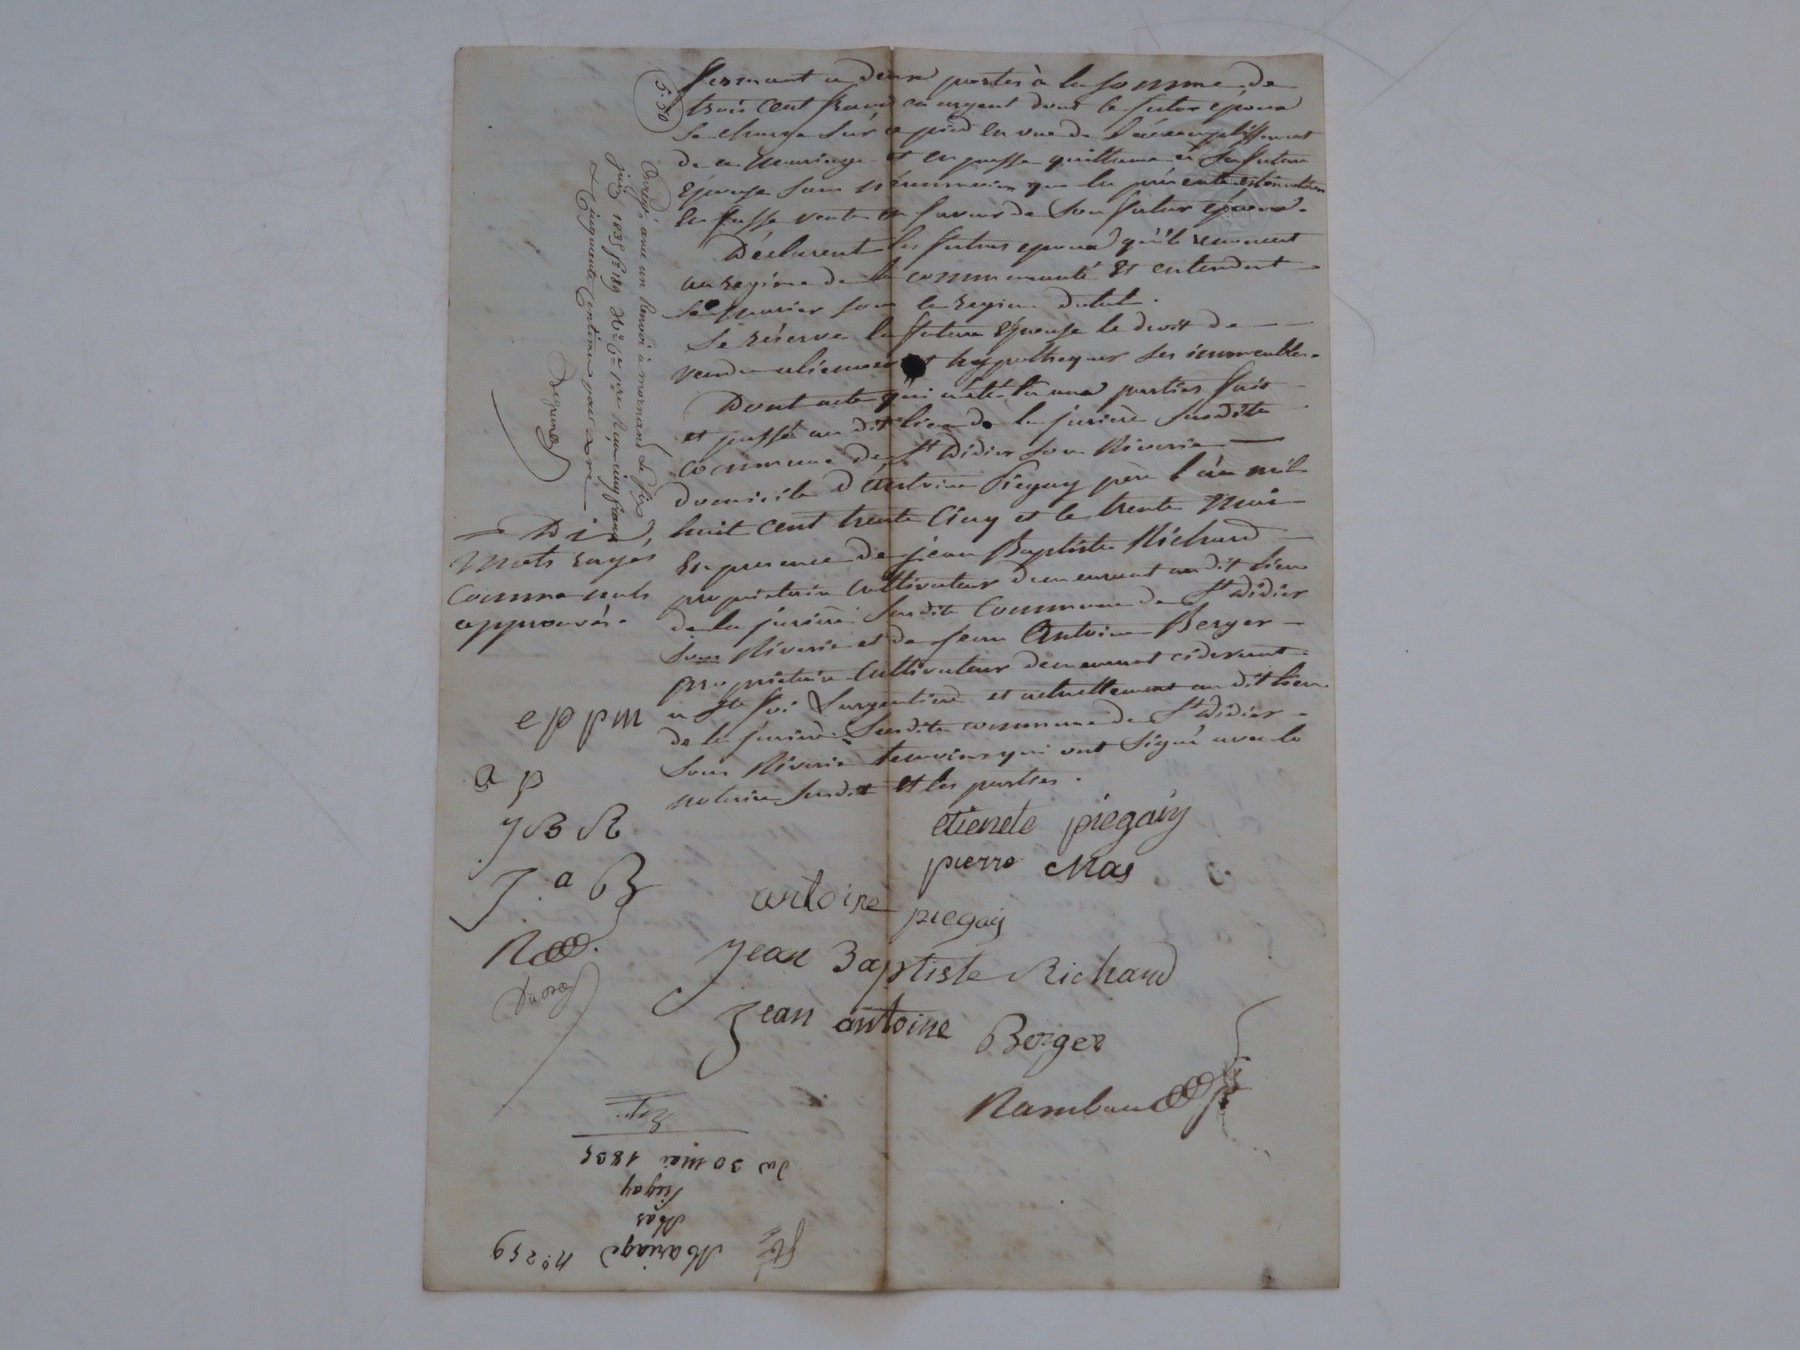 fermant a deux portes à la somme de
trois cent francs en argent dont le futur époux
se charge sur ce pied en vue de l'accomplissement
de ce mariage et en passe quittance à sa future
épouse sans néanmoins que la présente estimation
en fasse vente en faveur de son futur époux.
Déclarent les futurs epoux qu'ils renoncent
au régime de la communauté et entendent
se marier sous le regime dotal.
Se réserve la future épouse le droit de
vendre aliener et hypothequer ses immeubles.
Dont acte qui a été lu aux parties fait
et passé au dit lieu de la jurière susdite
commune de St Didier sous Riverie
domicile d'Antoine Piegay père l'an mil
huit cent trente cinq et le trente Mai
En presence de jean Baptiste Richard
propriétaire cultivateur demeurant au dit lieu
de la jurière susdite Commune de St Didier
sous Riverie et de Jean Antoine Berger
propriétaire Cultivateur demeurant cidevant
a Ste foi Largentière et actuellement au dit lieu
de la jurière susdite commune de St Didier
sous Riverie temoins qui ont signé avec le
notaire susdit et les parties.
5.50
Enregé avec un renvoi à mornand le six
juin 1835 fo 189 Ro Ce 1ere Reçu cinq francs
Cinquante centimes pour
Dix
Mots rayés
Comme nuls
approuvés.
e p p m
a p
J B R
J. a B
R
etienete piegaiy
pierre Mas
antoine piegay
Jean Baptiste Richard
Jean antoine Berger
Rambaud
No 259
Mariage
Mas
Piegay
du 30 Mai 1835